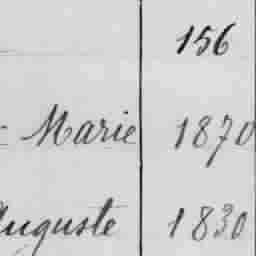 156
Marie 1870
Auguste 1830